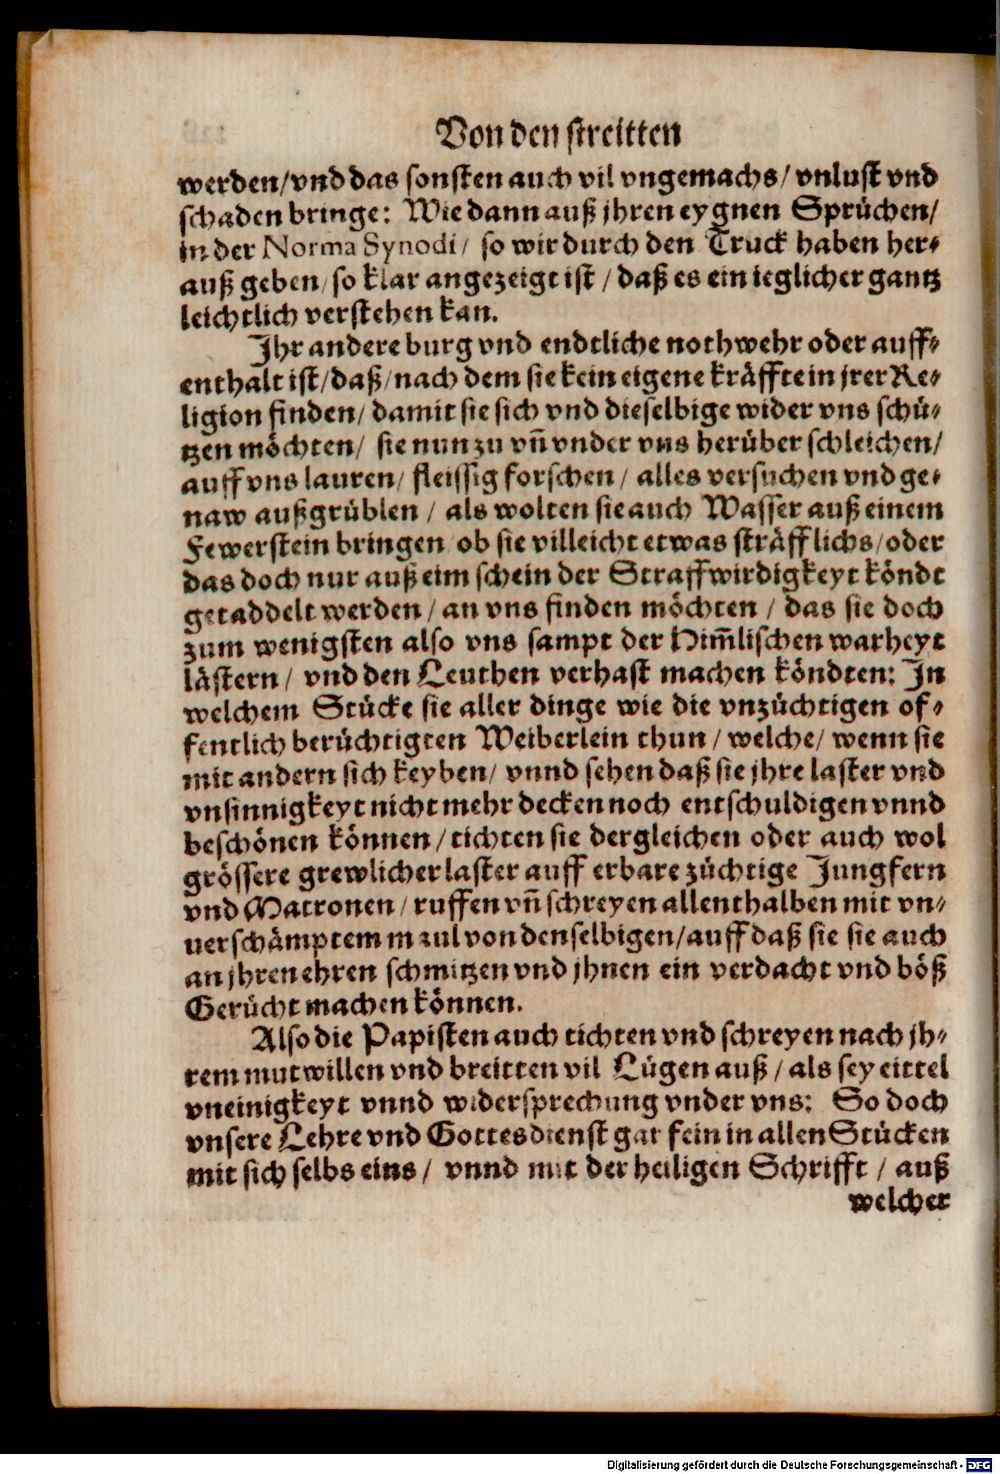 Von den streitten
werden/vnd das sonsten auch vil vngemachs/ vnlust vnd
schaden bringe: Wie dann auß jhren eygnen Sprüchen/
in der Norma Synodi/ so wir durch den Truck haben her-
auß geben/ so klar angezeigt ist / daß es ein ieglicher gantz
leichtlich verstehen kan.
Jhr andere burg vnd endtliche nothwehr oder auff-
enthalt ist/daß/nach dem sie kein eigene kräffte in jrer Re-
ligion finden/ damit sie sich vnd dieselbige wider vns schü-
tzen möchten/ sie nun zu vn̄ vnder vns herüber schleichen/
auff vns lauren/ fleissig forschen / alles versuchen vnd ge-
naw außgrüblen / als wolten sie auch Wasser auß einem
Fewerstein bringen ob sie villeicht etwas sträfflichs/oder
das doch nur auß eim schein der Straffwirdigkeyt köndt
getaddelt werden / an vns finden möchten / das sie doch
zum wenigsten also vns sampt der Him̄lischen warheyt
lästern / vnd den Leuthen verhast machen köndten: Jn
welchem Stücke sie aller dinge wie die vnzüchtigen of-
fentlich berüchtigten Weiberlein thun / welche/ wenn sie
mit andern sich keyben/ vnnd sehen daß sie jhre laster vnd
vnsinnigkeyt nicht mehr decken noch entschuldigen vnnd
beschönen können / tichten sie dergleichen oder auch wol
grössere grewlicher laster auff erbare züchtige Jungfern
vnd Matronen / ruffen vn̄ schreyen allenthalben mit vn-
uerschämptem mzul von denselbigen/auff daß sie sie auch
an jhren ehren schmitzen vnd jhnen ein verdacht vnd böß
Gerücht machen können.
Also die Papisten auch tichten vnd schreyen nach jh-
rem mutwillen vnd breitten vil Lügen auß / als sey eittel
vneinigkeyt vnnd widersprechung vnder vns: So doch
vnsere Lehre vnd Gottesdienst gar fein in allen Stücken
mit sich selbs eins / vnnd mit der heiligen Schrifft / auß
welcher
Digitalisierung gefördert durch die Deutsche Forschungsgemeinschaft - DFG